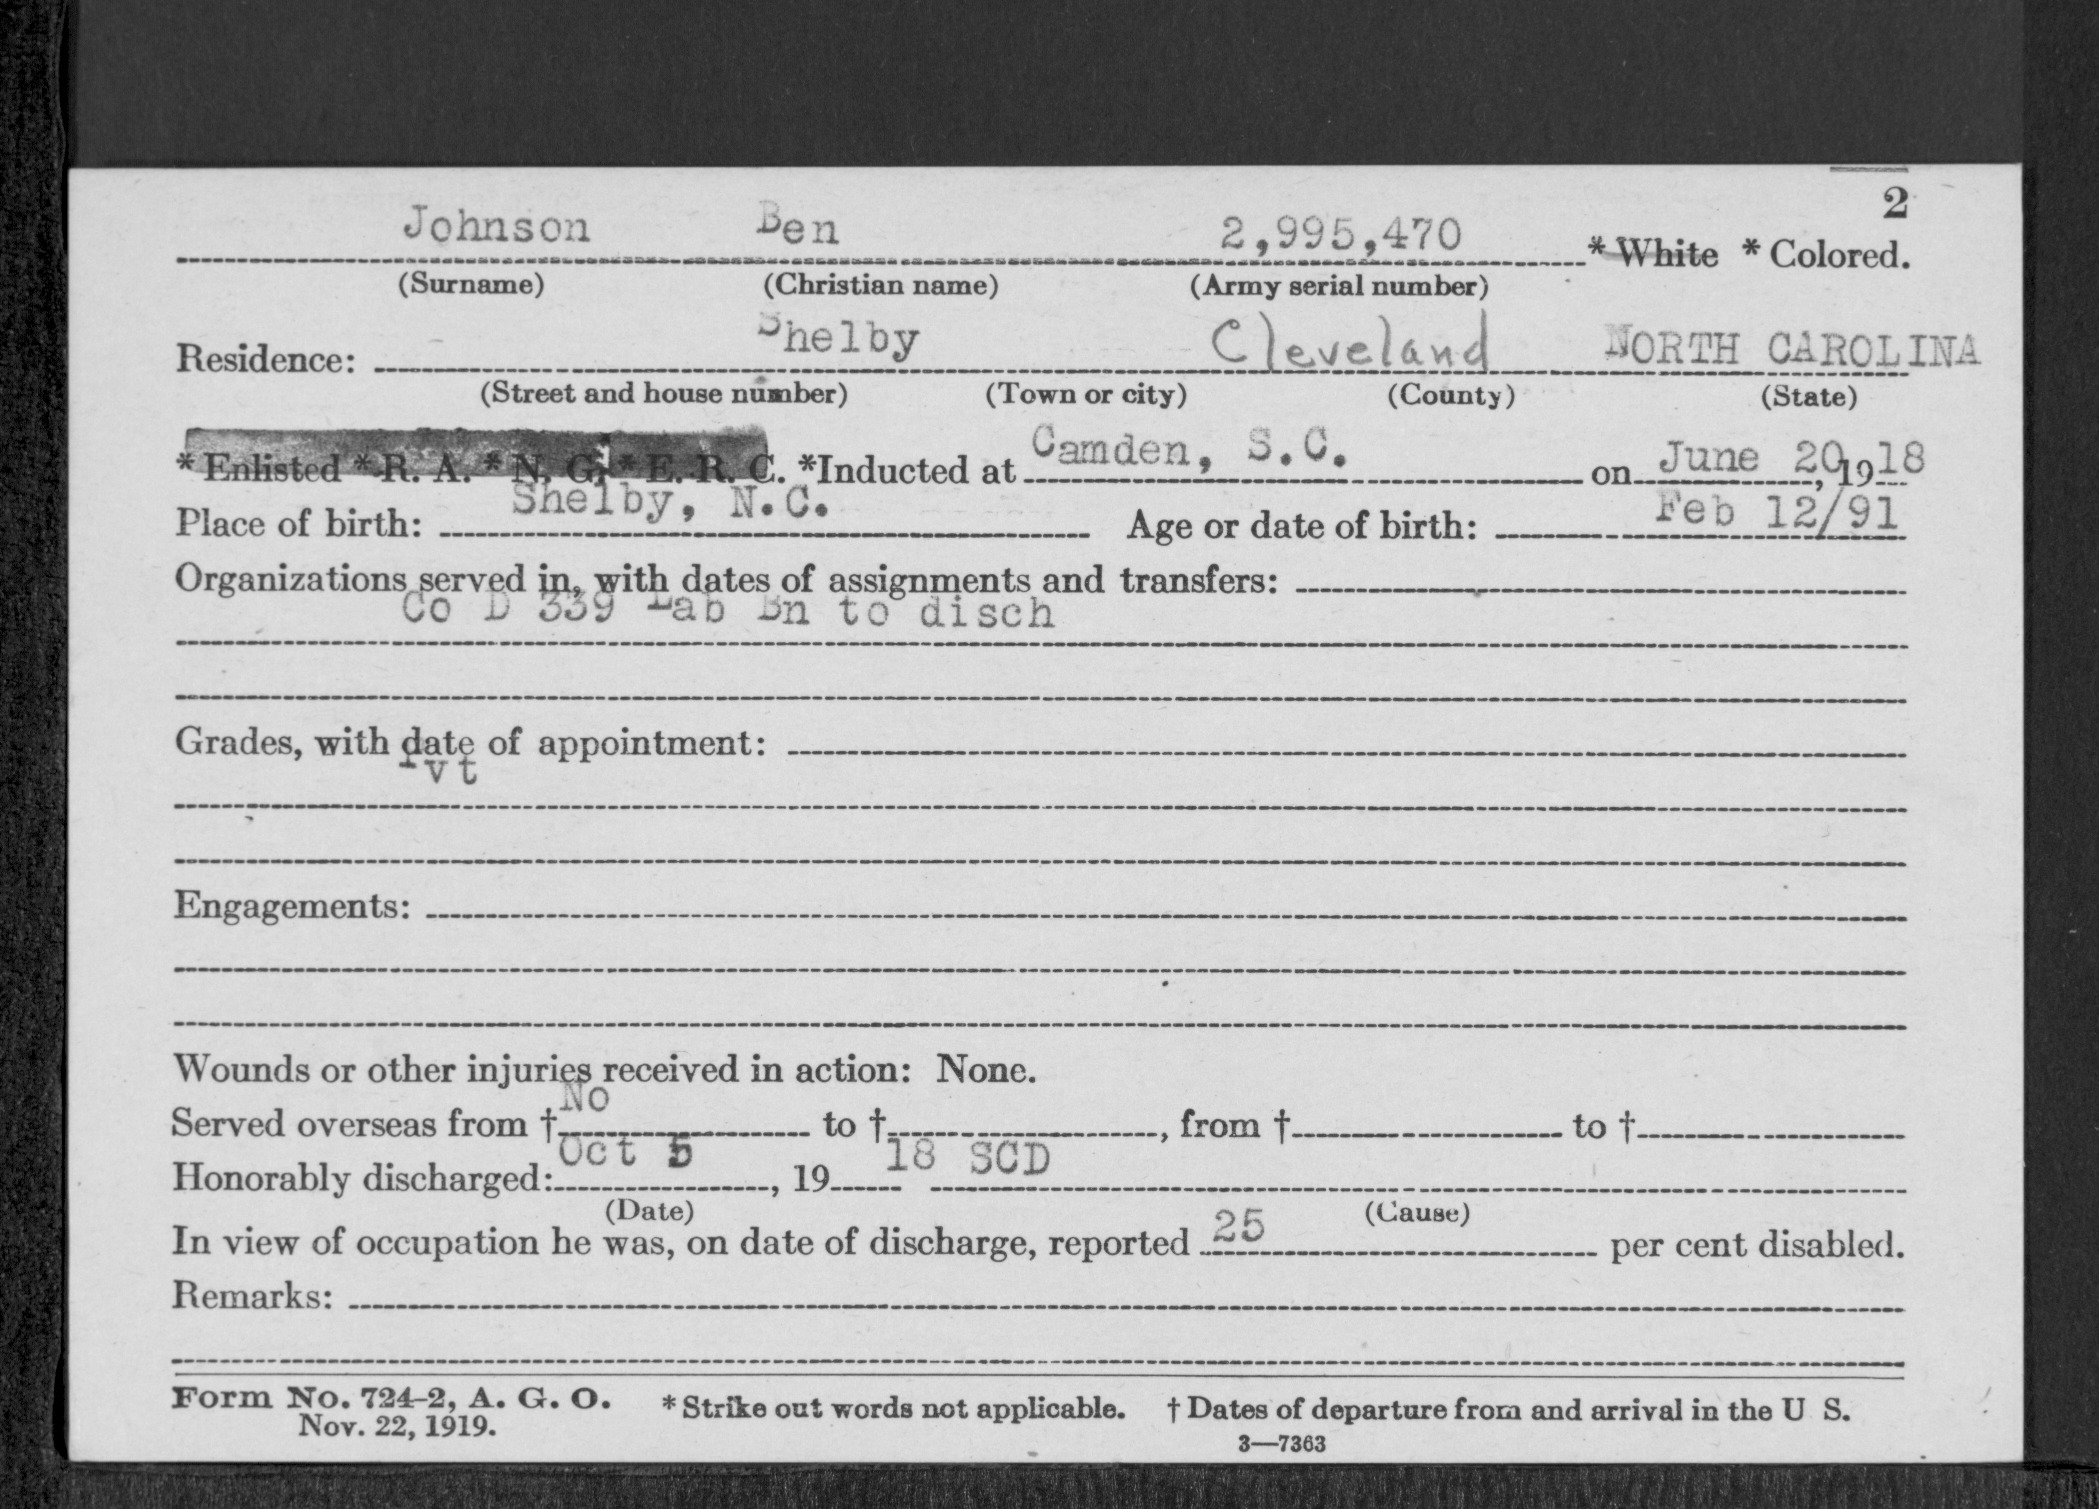 2
Johnson Ben 2,995,470 * White * Colored.
(Surname) (Christian name) (Army serial number)
Residence: Shelby Cleveland NORTH CAROLINA
(Street and house number) (Town or city) (County) (State)
* Enlisted * R. A. * N. G. * E. R. C. *Inducted at Camden, S.C. on June 20, 1918
Place of birth: Shelby, N.C. Age or date of birth: Feb 12/91
Organizations served in, with dates of assignments and transfers:
Co D 339 Lab Bn to disch
Grades, with date of appointment:
Pvt
Engagements:
Wounds or other injuries received in action: None.
Served overseas from † No to †, from † to †
Honorably discharged: Oct 5, 19 18 SCD
(Date) (Cause)
In view of occupation he was, on date of discharge, reported 25 per cent disabled.
Remarks:
Form No. 724-2, A. G. O. * Strike out words not applicable. † Dates of departure from and arrival in the U S.
Nov. 22, 1919.
3—7363